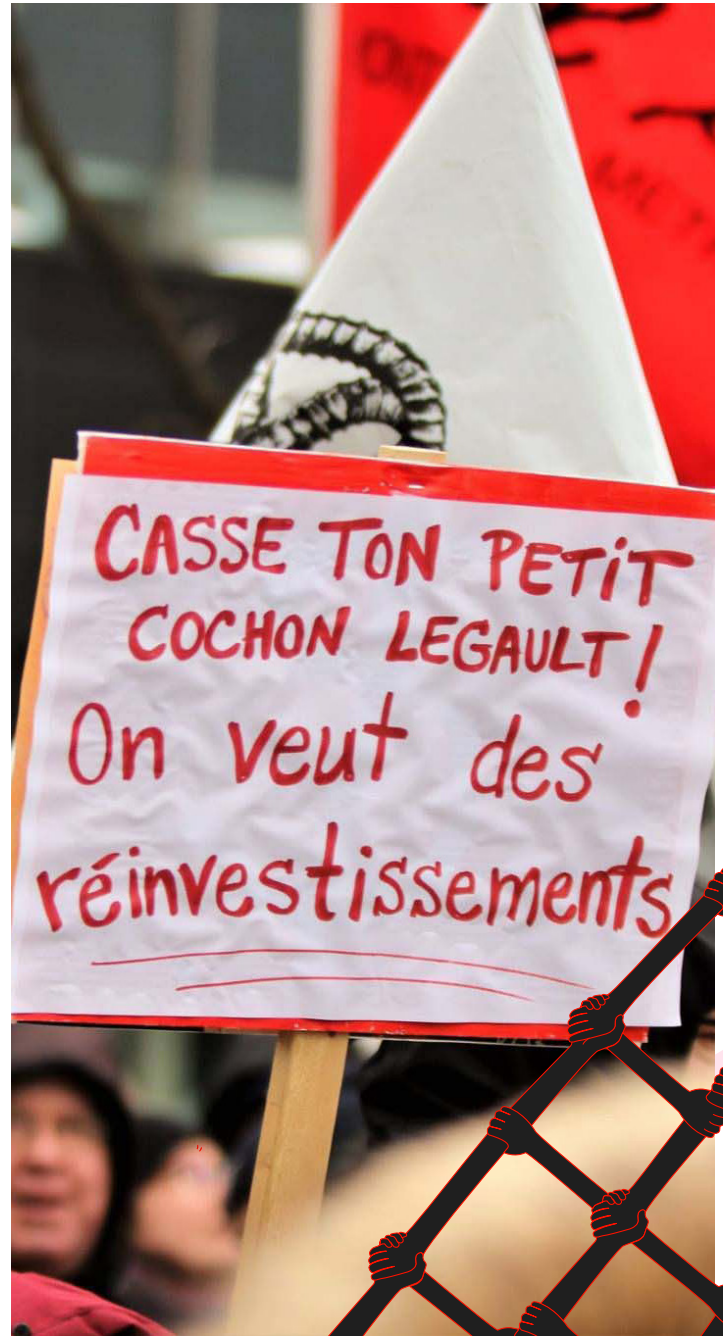 CASSE TON PETIT
COCHON LEGAULT!
On veut des
réinvestissements